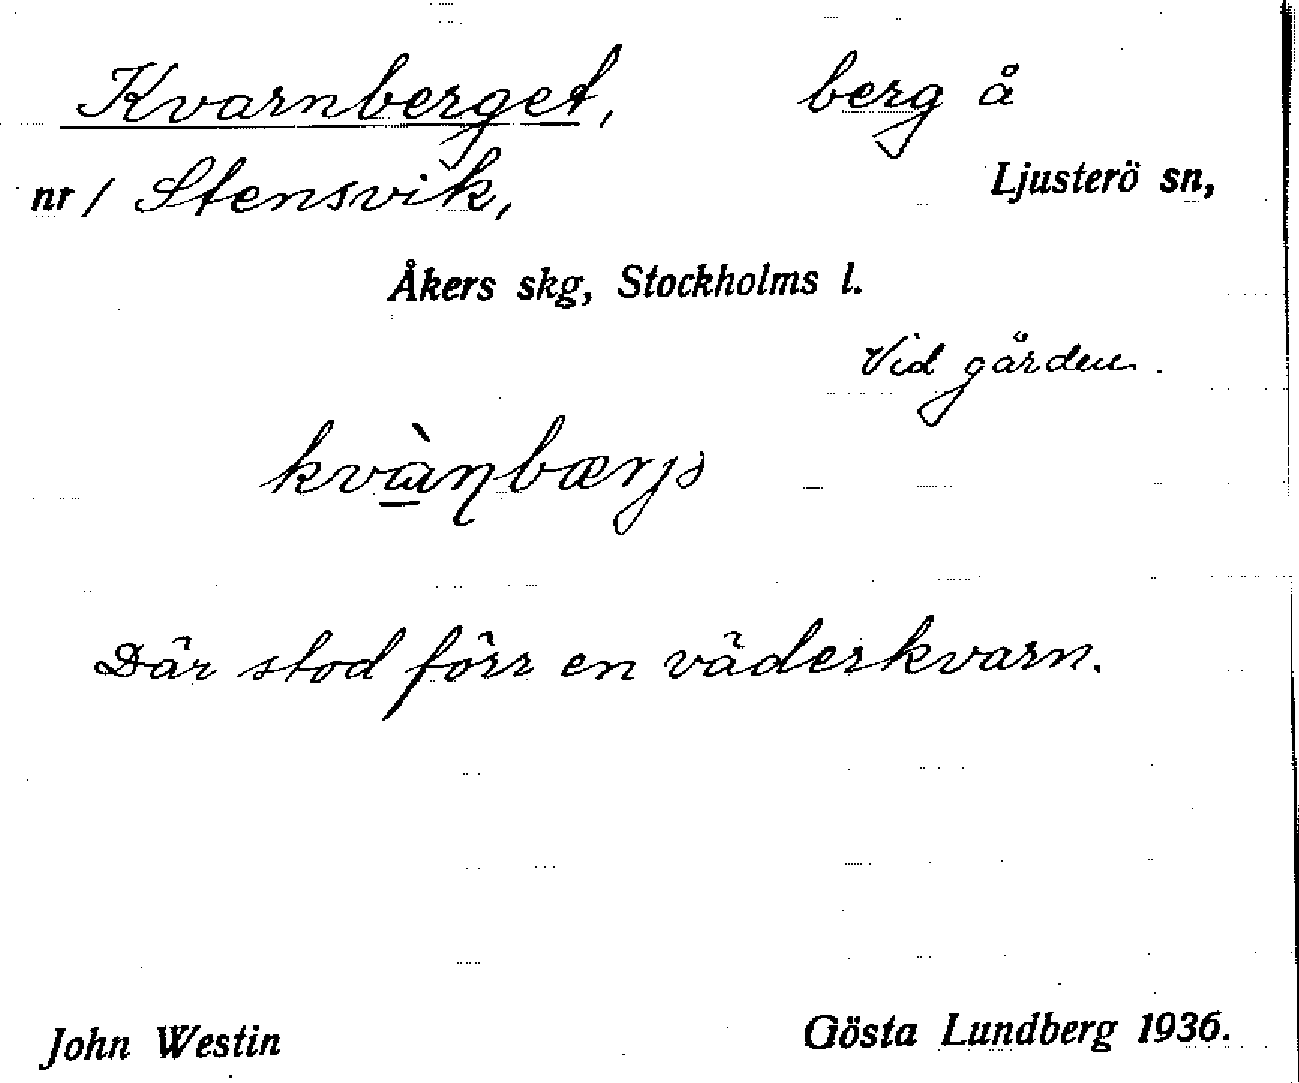 Kvarnberget, berg å
nr 1 Stensvik, Ljusterö sn,
Åkers skg, Stockholms l.
Vid gården.
Där stod förr en väderkvarn.
John Westin Gösta Lundberg 1936.